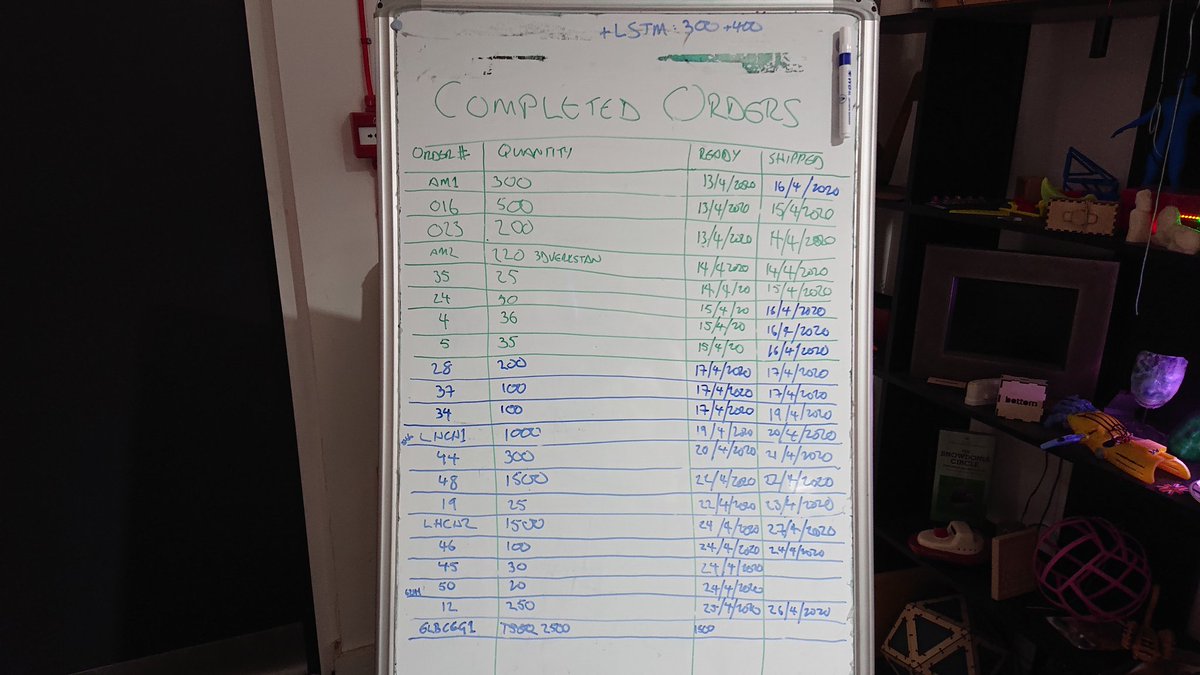 +LSTM: 300 +400
COMPLETED ORDERS
ORDER # QUANTITY READY SHIPPED
AM1 300 13/4/2020 16/4/2020
016 500 13/4/2020 15/4/2020
023 200 13/4/2020 14/4/2020
AM2 220 3DVERKSTAN 14/4/2020 14/4/2020
35 25 14/4/20 15/4/2020
24 30 15/4/20 16/4/2020
4 36 15/4/20 16/4/2020
5 35 15/4/20 16/4/2020
28 200 17/4/2020 17/4/2020
37 100 17/4/2020 17/4/2020
34 100 17/4/2020 19/4/2020
LNCH1 1000 19/4/2020 20/4/2020
44 300 20/4/2020 21/4/2020
48 1500 22/4/2020
19 25 22/4/2020 23/4/2020
LNCH2 1500 24/4/2020 27/4/2020
46 100 24/4/2020 24/4/2020
45 30 24/4/2020
50 20 24/4/2020
12 250 25/4/2020 26/4/2020
GLBCGG1 2500 1500
bottom
SNOWDONIA
CIRCLE